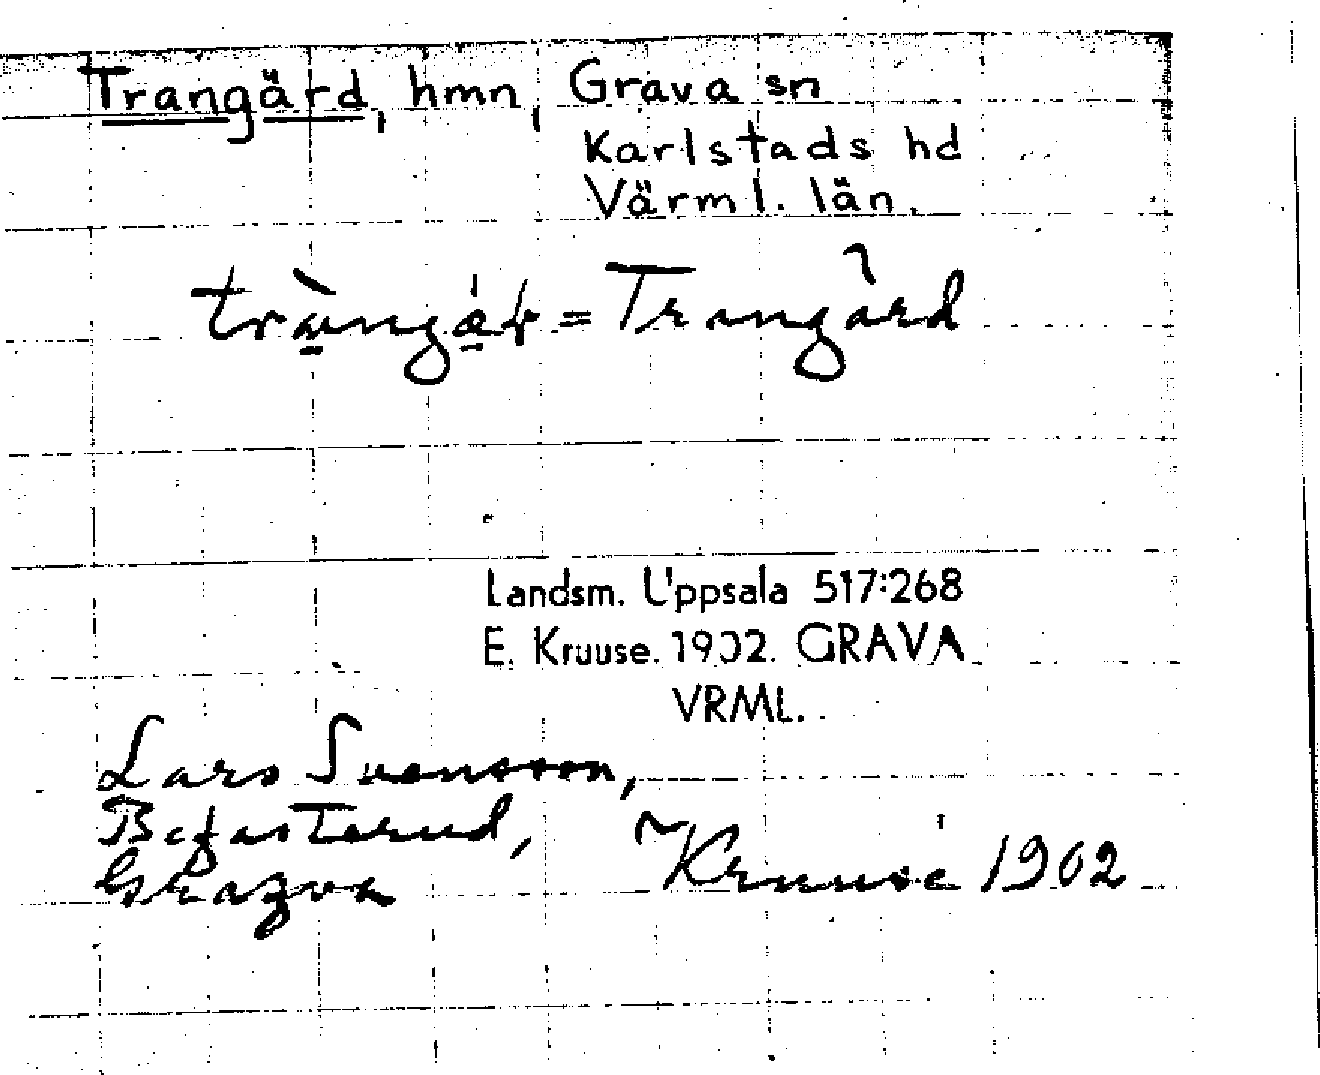 Trangärd, hmn, Grava sn
Karlstads hd
Värml. län.
= Trangärd
Landsm. Uppsala 517:268
E. Kruuse. 1902. GRAVA
VRML.
Lars Svensson,
Grava Kruuse 1902